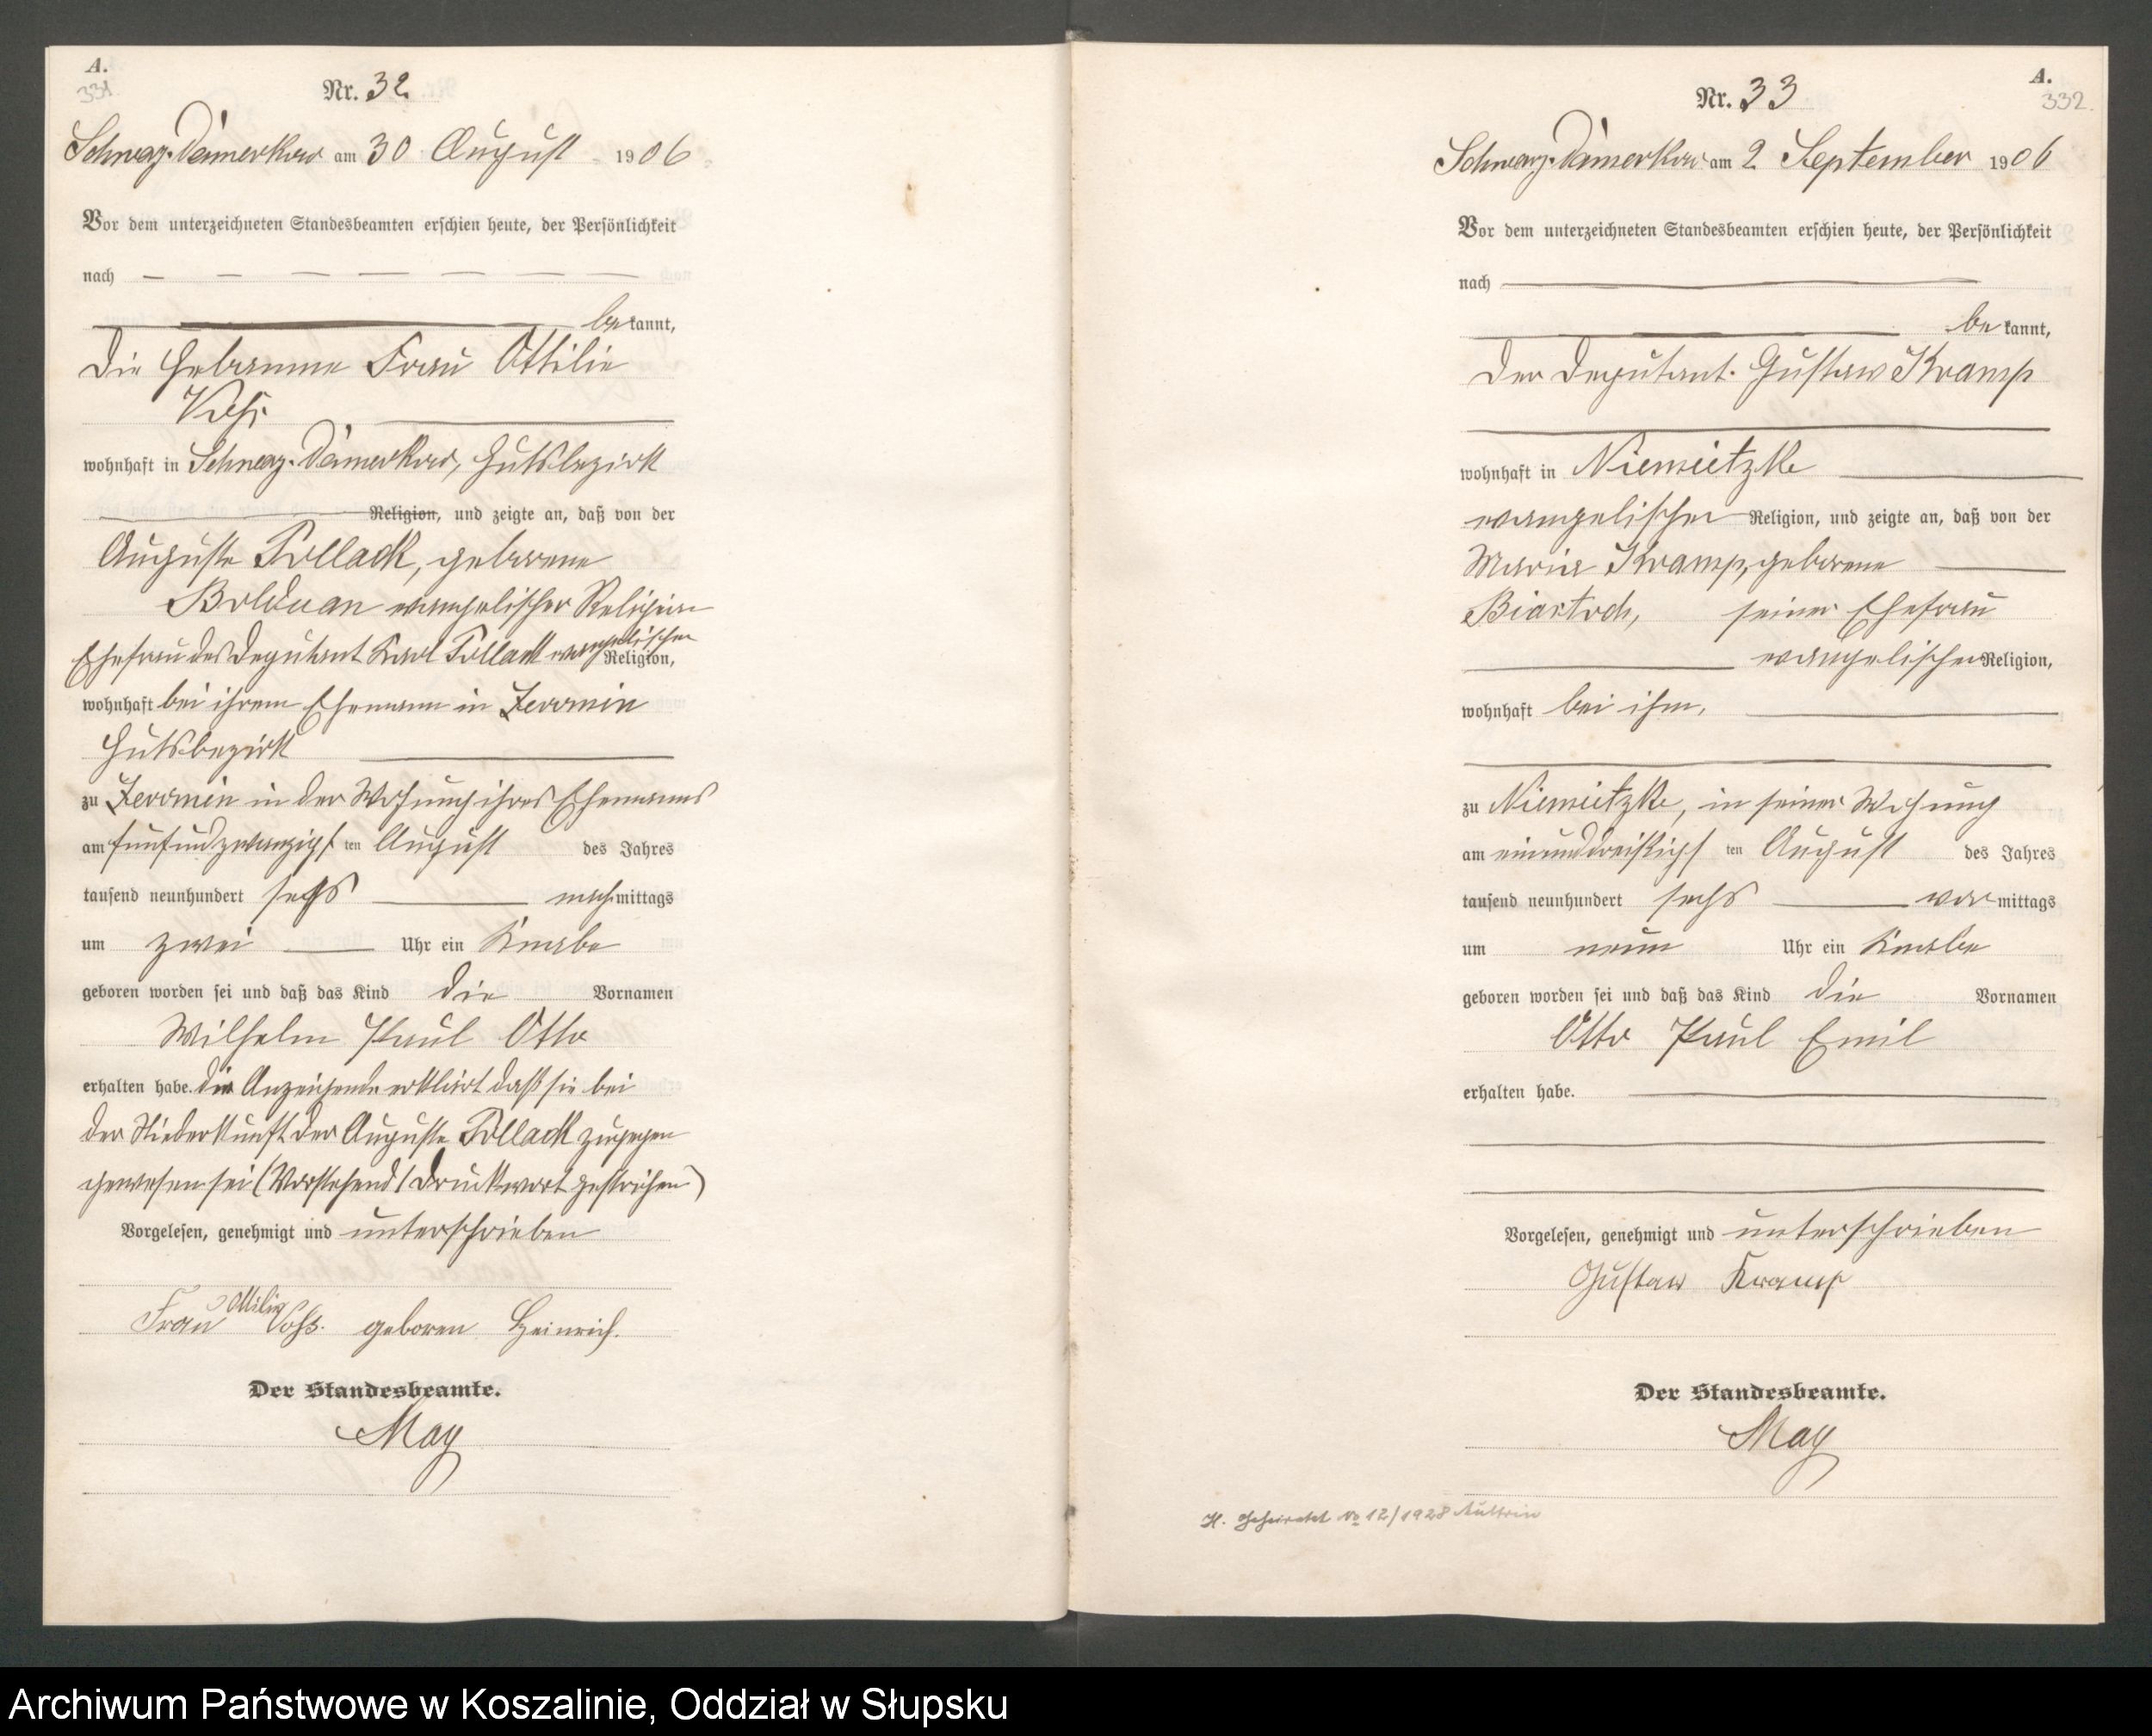 A.
331.
Nr. 32
Schwarz-Damerkow am 30 August 1906
Vor dem unterzeichneten Standesbeamten erschien heute, der Persönlichkeit
nach
bekannt,
die Hebamme Frau Ottilie
Voß
wohnhaft in Schwarz-Damerkow, Gutsbezirk
Religion, und zeigte an, daß von der
Auguste Pollack, geborene
Bolduan evangelischer Religion
Ehefrau des Deputant Karl Pollack evangelischer Religion,
wohnhaft bei ihrem Ehemann in Jerrmin
Gutsbezirk
zu Jerrmin in der Wohnung ihres Ehemanns
am fünfundzwanzigsten August des Jahres
tausend neunhundert sechs nachmittags
um zwei Uhr ein Knabe
geboren worden sei und daß das Kind die Vornamen
Wilhelm Paul Otto
erhalten habe. Die Anzeigende erklärt daß sie bei
der Niederkunft der Auguste Pollack zugegen
gewesen sei (Vorstehend 1 Druckwort gestrichen)
Vorgelesen, genehmigt und unterschrieben
Frau Ottilie Voß. geboren Heinrich.
Der Standesbeamte.
May
A.
332.
Nr. 33
Schwarz-Damerkow am 2 September 1906
Vor dem unterzeichneten Standesbeamten erschien heute, der Persönlichkeit
nach
bekannt,
der Deputant Gustav Kramp
wohnhaft in Niemietzke
evangelischer Religion, und zeigte an, daß von der
Maria Kramp, geborene
seiner Ehefrau
evangelischer Religion,
wohnhaft bei ihm,
zu Niemietzke, in seiner Wohnung
am einunddreißigsten August des Jahres
tausend neunhundert sechs vormittags
um neun Uhr ein Knabe
geboren worden sei und daß das Kind die Vornamen
Otto Paul Emil
erhalten habe.
Vorgelesen, genehmigt und unterschrieben
Gustav Kramp
Der Standesbeamte.
May
H. Geheiratet No 12/1928
Archiwum Państwowe w Koszalinie, Oddział w Słupsku